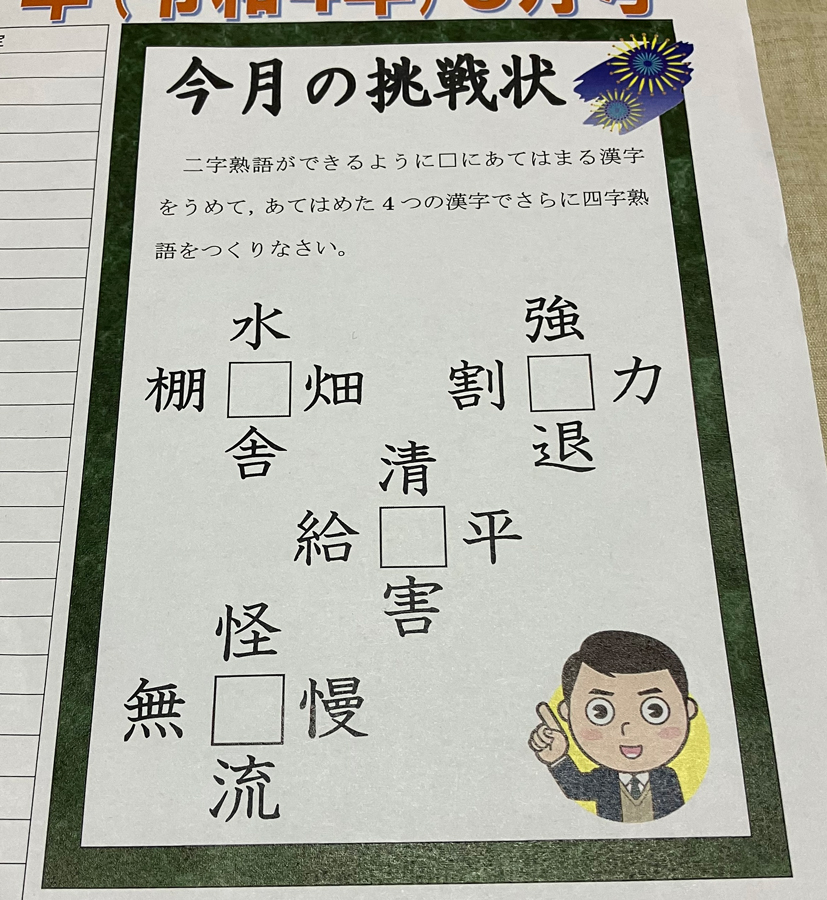 今月の挑戦状
二字熟語ができるように□にあてはまる漢字
をうめて，あてはめた4つの漢字でさらに四字熟
語をつくりなさい。
水
棚□畑
舎
強
割□力
退
清
給□平
害
怪
無□慢
流